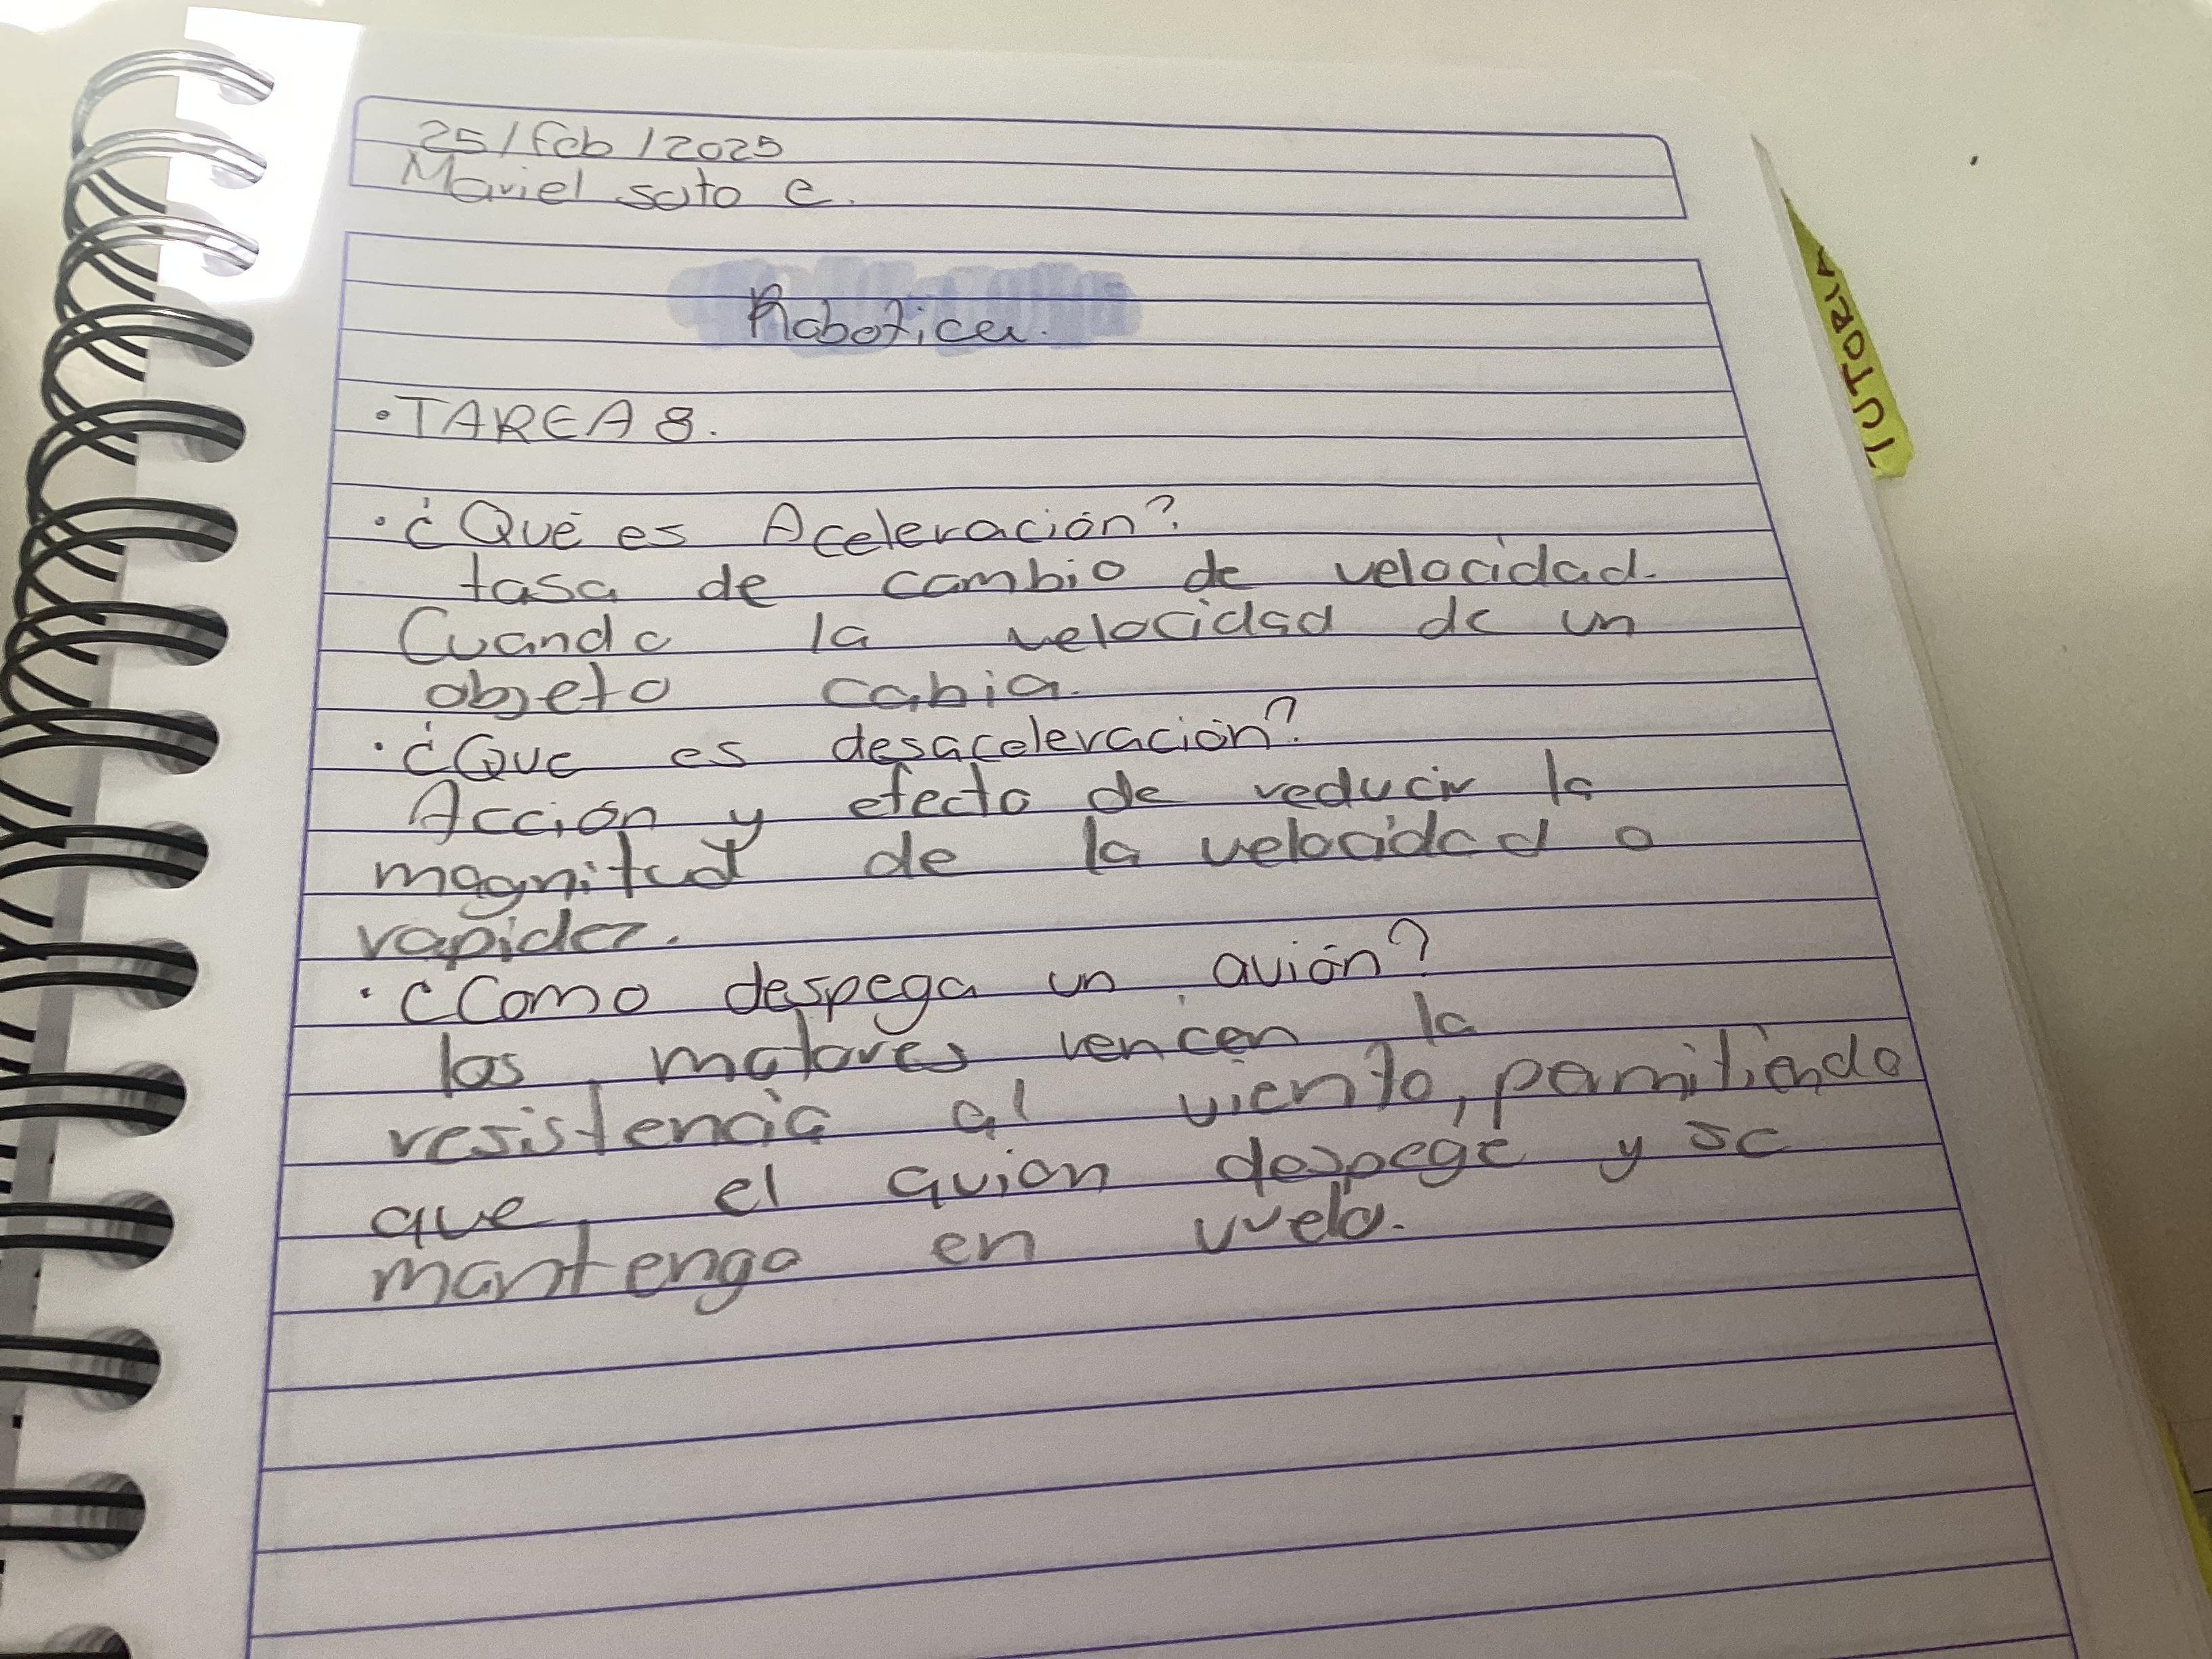 25/feb/2025
Mariel soto C.
Robotica.
TUTORIA
• TAREA 8.
• ¿Qué es Aceleración?
tasa de cambio de velocidad.
Cuando la velocidad de un
objeto cabia.
• ¿Que es desaceleración?
Acción y efecto de reducir la
magnitud de la velocidad o
rapidez.
• ¿Como despega un avión?
los motores vencen la
resistencia al viento, permitiendo
que el avion despege y se
mantenga en vuelo.